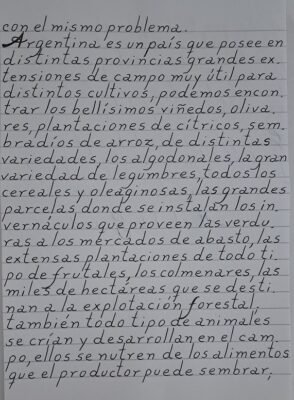 con el mismo problema.
Argentina es un país que posee en
distintas provincias grandes ex.
tensiones de campo muy útil para
distintos cultivos, podemos encon.
trar los bellísimos viñedos, oliva.
res, plantaciones de cítricos, sem.
bradíos de arroz, de distintas
variedades, los algodonales, la gran
variedad de legumbres, todos los
cereales y oleaginosas, las grandes
parcelas donde se instalan los in.
vernáculos que proveen las verdu.
ras a los mercados de abasto, las
extensas plantaciones de todo ti.
po de frutales, los colmenares, las
miles de hectáreas que se desti.
nan a la explotación forestal,
también todo tipo de animales
se crían y desarrollan en el cam.
po, ellos se nutren de los alimentos
que el productor puede sembrar,